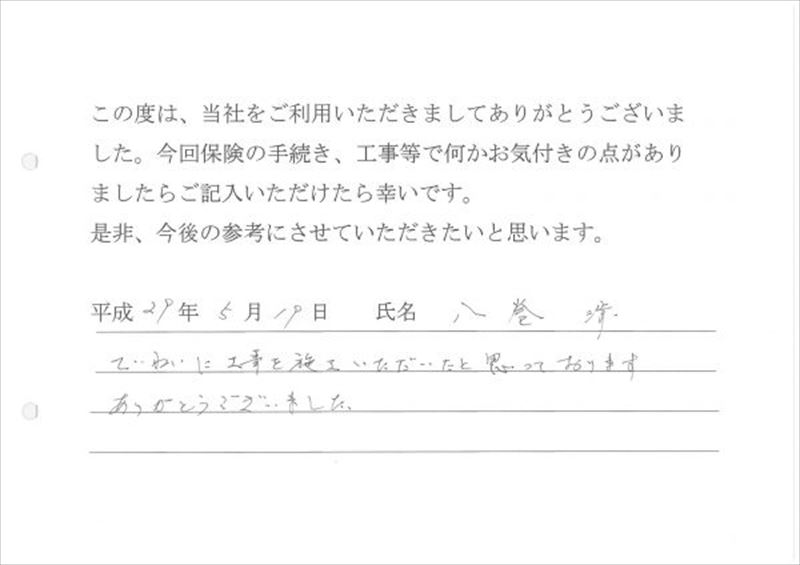 この度は、当社をご利用いただきましてありがとうございま
した。今回保険の手続き、工事等で何かお気付きの点があり
ましたらご記入いただけたら幸いです。
是非、今後の参考にさせていただきたいと思います。
平成 29 年 5 月 19 日 氏名 八巻
ていねいに工事を施工いただいたと思っております
ありがとうございました。